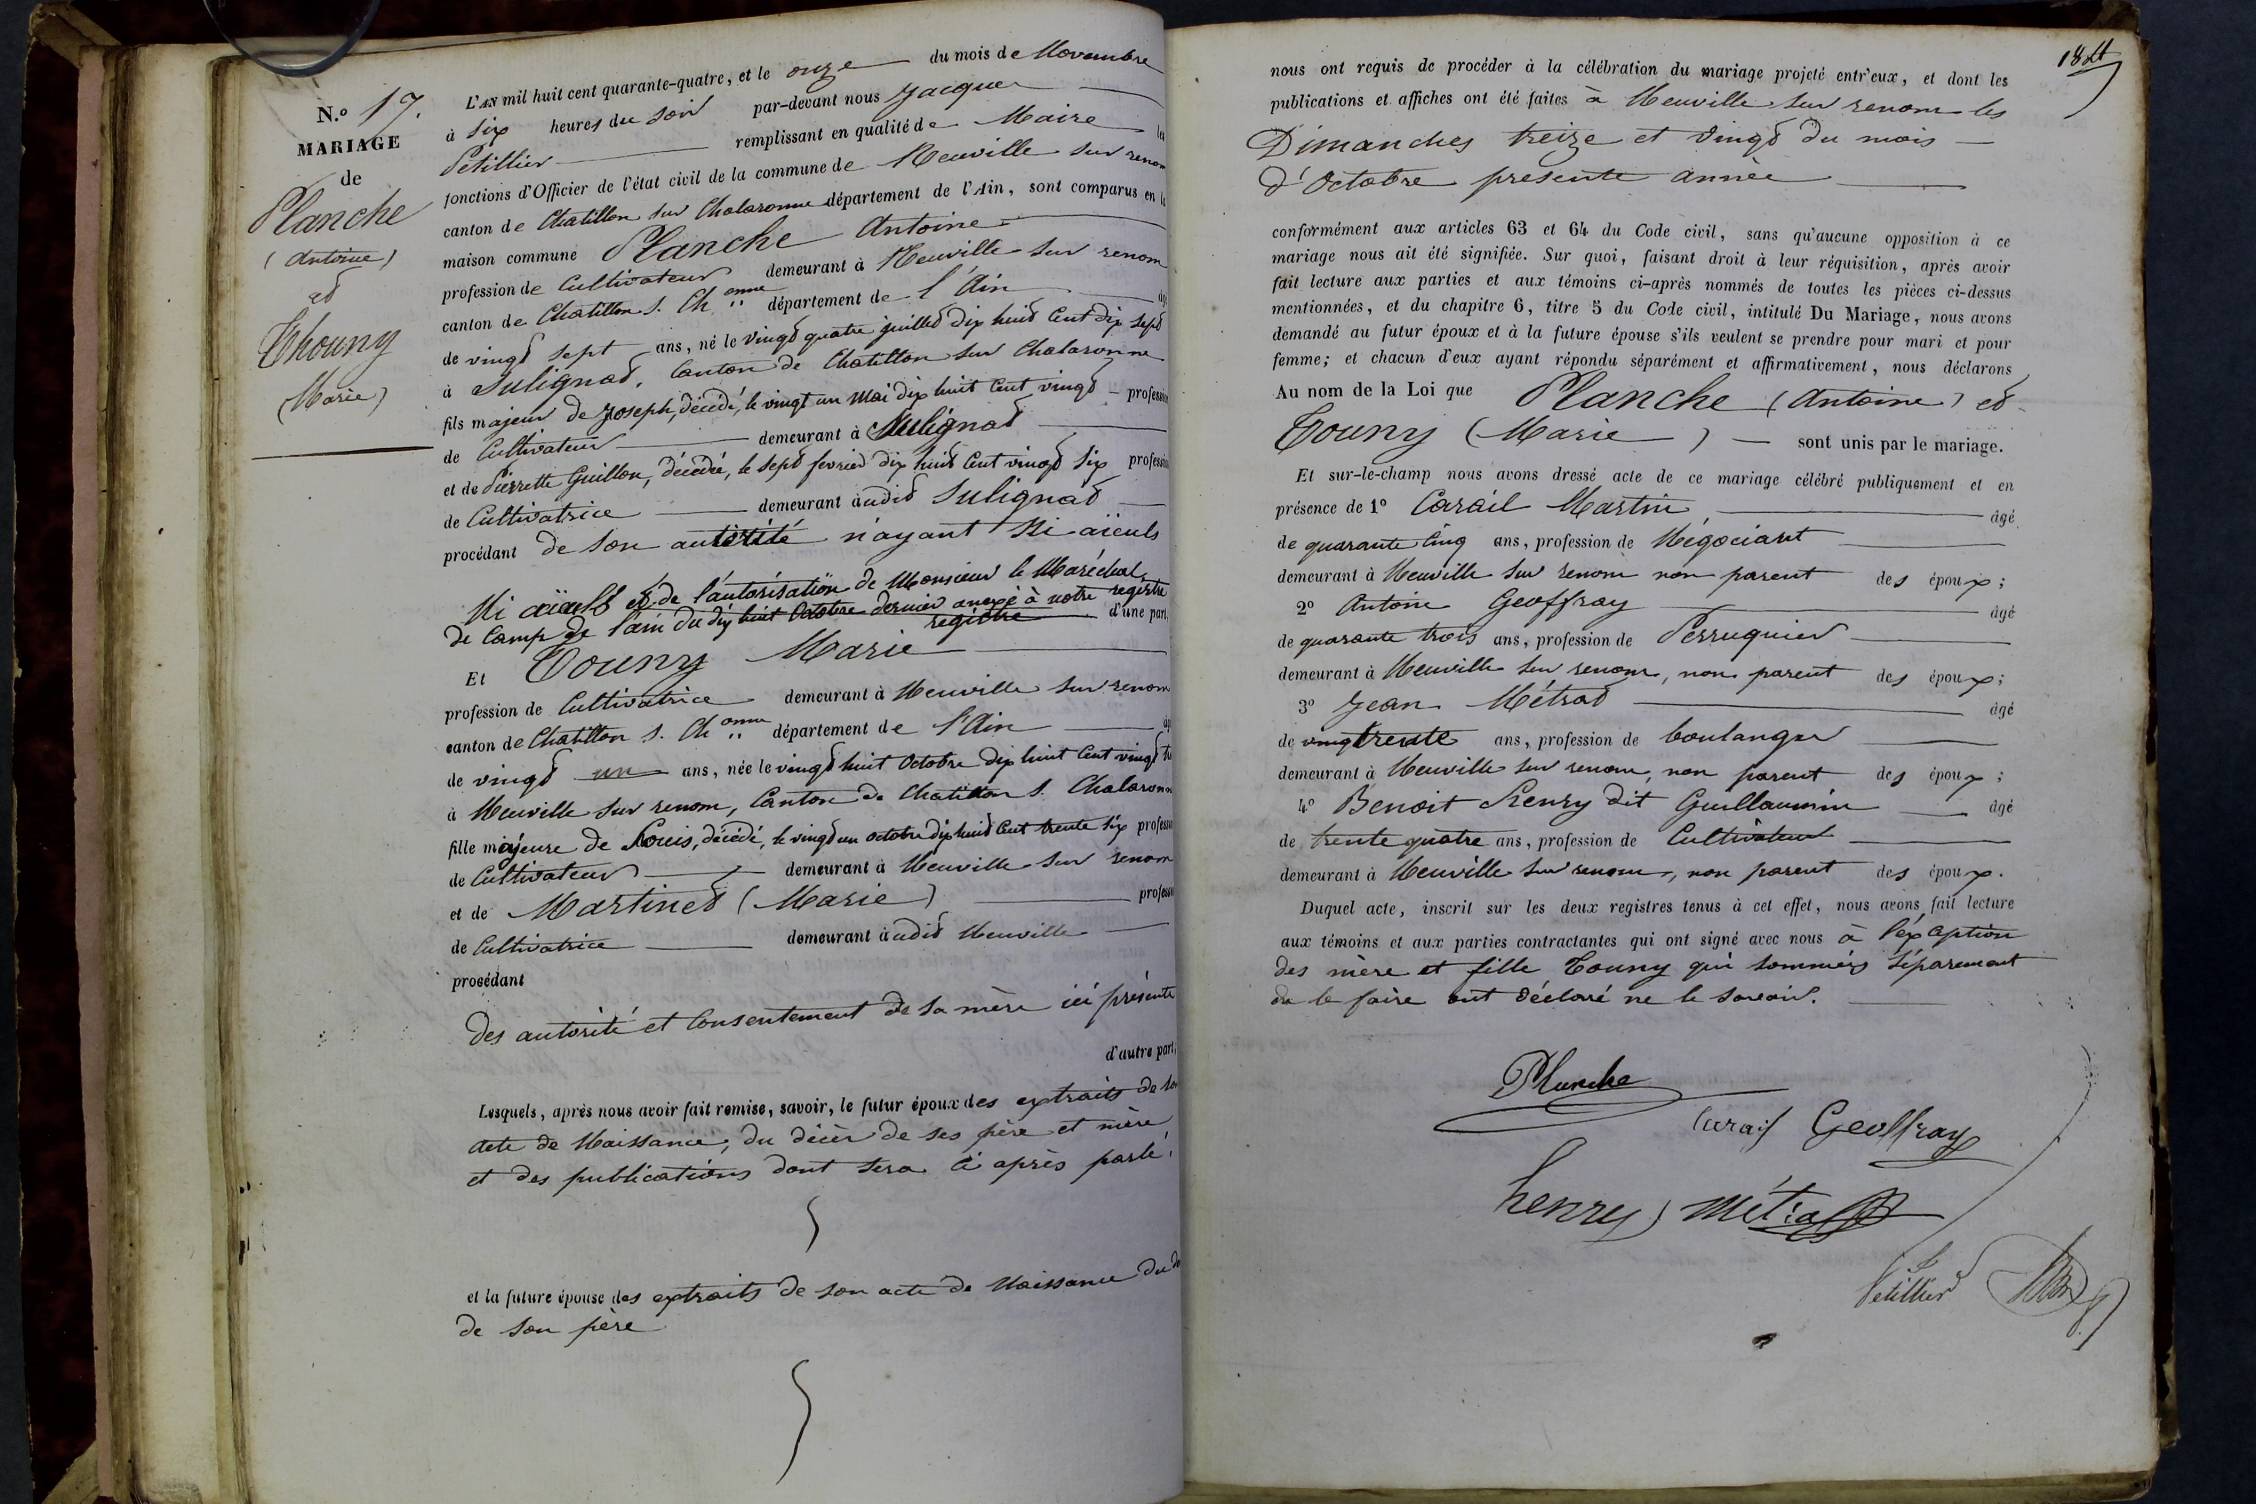 N.o 17.
MARIAGE
de
Planche
(Antoine)
et
Thouny
(Marie)
L'AN mil huit cent quarante-quatre, et le onze du mois de Novembre
à six heures du soir par-devant nous Jacques
Petillier remplissant en qualité de Maire les
fonctions d'Officier de l'état civil de la commune de Neuville sur renom
canton de Chatillon sur Chalaronne département de l'Ain, sont comparus en la
maison commune Planche Antoine
profession de Cultivateur demeurant à Neuville sur renom
canton de Chatillon s. Ch.onne département de l'Ain âgé
de vingt sept ans, né le vingt quatre juillet dix huit Cent dix sept
à Sulignat, Canton de Chatillon sur Chalaronne
fils majeur de Joseph, décédé, le vingt un Mai dix huit Cent vingt profession
de Cultivateur demeurant à Sulignat
et de Pierrette Guillon, décédée, le sept fevrier dix huit Cent vingt six profession
de Cultivatrice demeurant audit Sulignat
procédant de son autorité n'ayant Ni aïeuls
Ni aïeuls et de l'autorisation de Monsieur le Maréchal
de Camp de l'ain du dix huit Octobre dernier anexé à notre registre
registre d'une part,
Et Touny Marie
profession de Cultivatrice demeurant à Neuville sur renom
canton de Chatillon s. Ch.onne département de l'Ain
de vingt un ans, née le vingt huit Octobre dix huit Cent vingt
à Neuville sur renom, Canton de Chatillon s. Chalaronne
fille majeure de Louis, décédé, le vingt un octobre dix huit Cent trente six profession
de Cultivateur demeurant à Neuville sur renom
et de Martinet (Marie) profession
de Cultivatrice demeurant audit Neuville
procédant
des autorité et Consentement de sa mère ici présente
d'autre part;
Lesquels, après nous avoir fait remise, savoir, le futur époux des extraits de son
acte de Naissance, du décès de ses père et mère
et des publications dont sera ci après parlé;
et la future épouse des extraits de son acte de Naissance du
de son père
1844
nous ont requis de procéder à la célébration du mariage projeté entr'eux, et dont les
publications et affiches ont été faites à Neuville sur renom les
Dimanches treize et vingt du mois
d'Octobre presente année
conformément aux articles 63 et 64 du Code civil, sans qu'aucune opposition à ce
mariage nous ait été signifiée. Sur quoi, faisant droit à leur réquisition, après avoir
fait lecture aux parties et aux témoins ci-après nommés de toutes les pièces ci-dessus
mentionnées, et du chapitre 6, titre 5 du Code civil, intitulé Du Mariage, nous avons
demandé au futur époux et à la future épouse s'ils veulent se prendre pour mari et pour
femme; et chacun d'eux ayant répondu séparément et affirmativement, nous déclarons
Au nom de la Loi que Planche (Antoine) et
Touny (Marie) sont unis par le mariage.
Et sur-le-champ nous avons dressé acte de ce mariage célébré publiquement et en
présence de 1o Carail Martin âgé
de quarante cinq ans, profession de Négociant
demeurant à Neuville sur renom non parent des époux;
2o Antoine Geoffray âgé
de quarante trois ans, profession de Perruquier
demeurant à Neuville sur renom, non parent des époux;
3o Jean Métrat âgé
de trente ans, profession de boulanger
demeurant à Neuville sur renom, non parent des époux;
4o Benoit henry dit Guillaumin âgé
de trente quatre ans, profession de Cultivateur
demeurant à Neuville sur renom, non parent des époux.
Duquel acte, inscrit sur les deux registres tenus à cet effet, nous avons fait lecture
aux témoins et aux parties contractantes qui ont signé avec nous à l'exception
des mère et fille Touny qui sommées séparement
de le faire ont déclaré ne le savoir.
Planche
Carail Geoffray
henry Métrat
Petillier